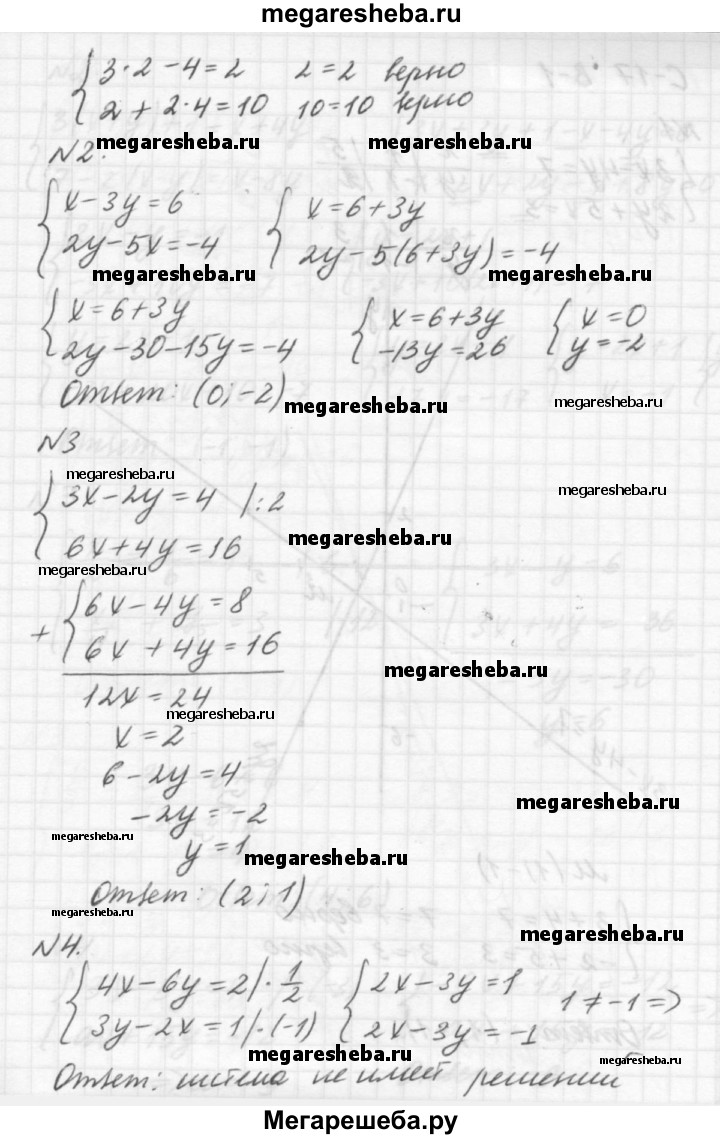 megaresheba.ru
3·2-4=2 2=2 верно
2+2·4=10 10=10 верно
N2.
megaresheba.ru megaresheba.ru
x-3y=6 x=6+3y
2y-5x=-4 2y-5(6+3y)=-4
megaresheba.ru megaresheba.ru
x=6+3y x=6+3y x=0
2y-30-15y=-4 -13y=26 y=-2
Ответ: (0;-2)
megaresheba.ru megaresheba.ru
N3
megaresheba.ru megaresheba.ru
3x-2y=4 |:2
6x+4y=16
megaresheba.ru
megaresheba.ru
6x-4y=8
+
6x+4y=16
megaresheba.ru
12x=24
megaresheba.ru
x=2
6-2y=4
megaresheba.ru
-2y=-2
megaresheba.ru
y=1
megaresheba.ru
Ответ: (2;1)
megaresheba.ru
N4.
4x-6y=2|·1/2 2x-3y=1 1≠-1=>
3y-2x=1|·(-1) 2x-3y=-1
megaresheba.ru megaresheba.ru
Ответ: система не имеет решений
Мегарешеба.ру